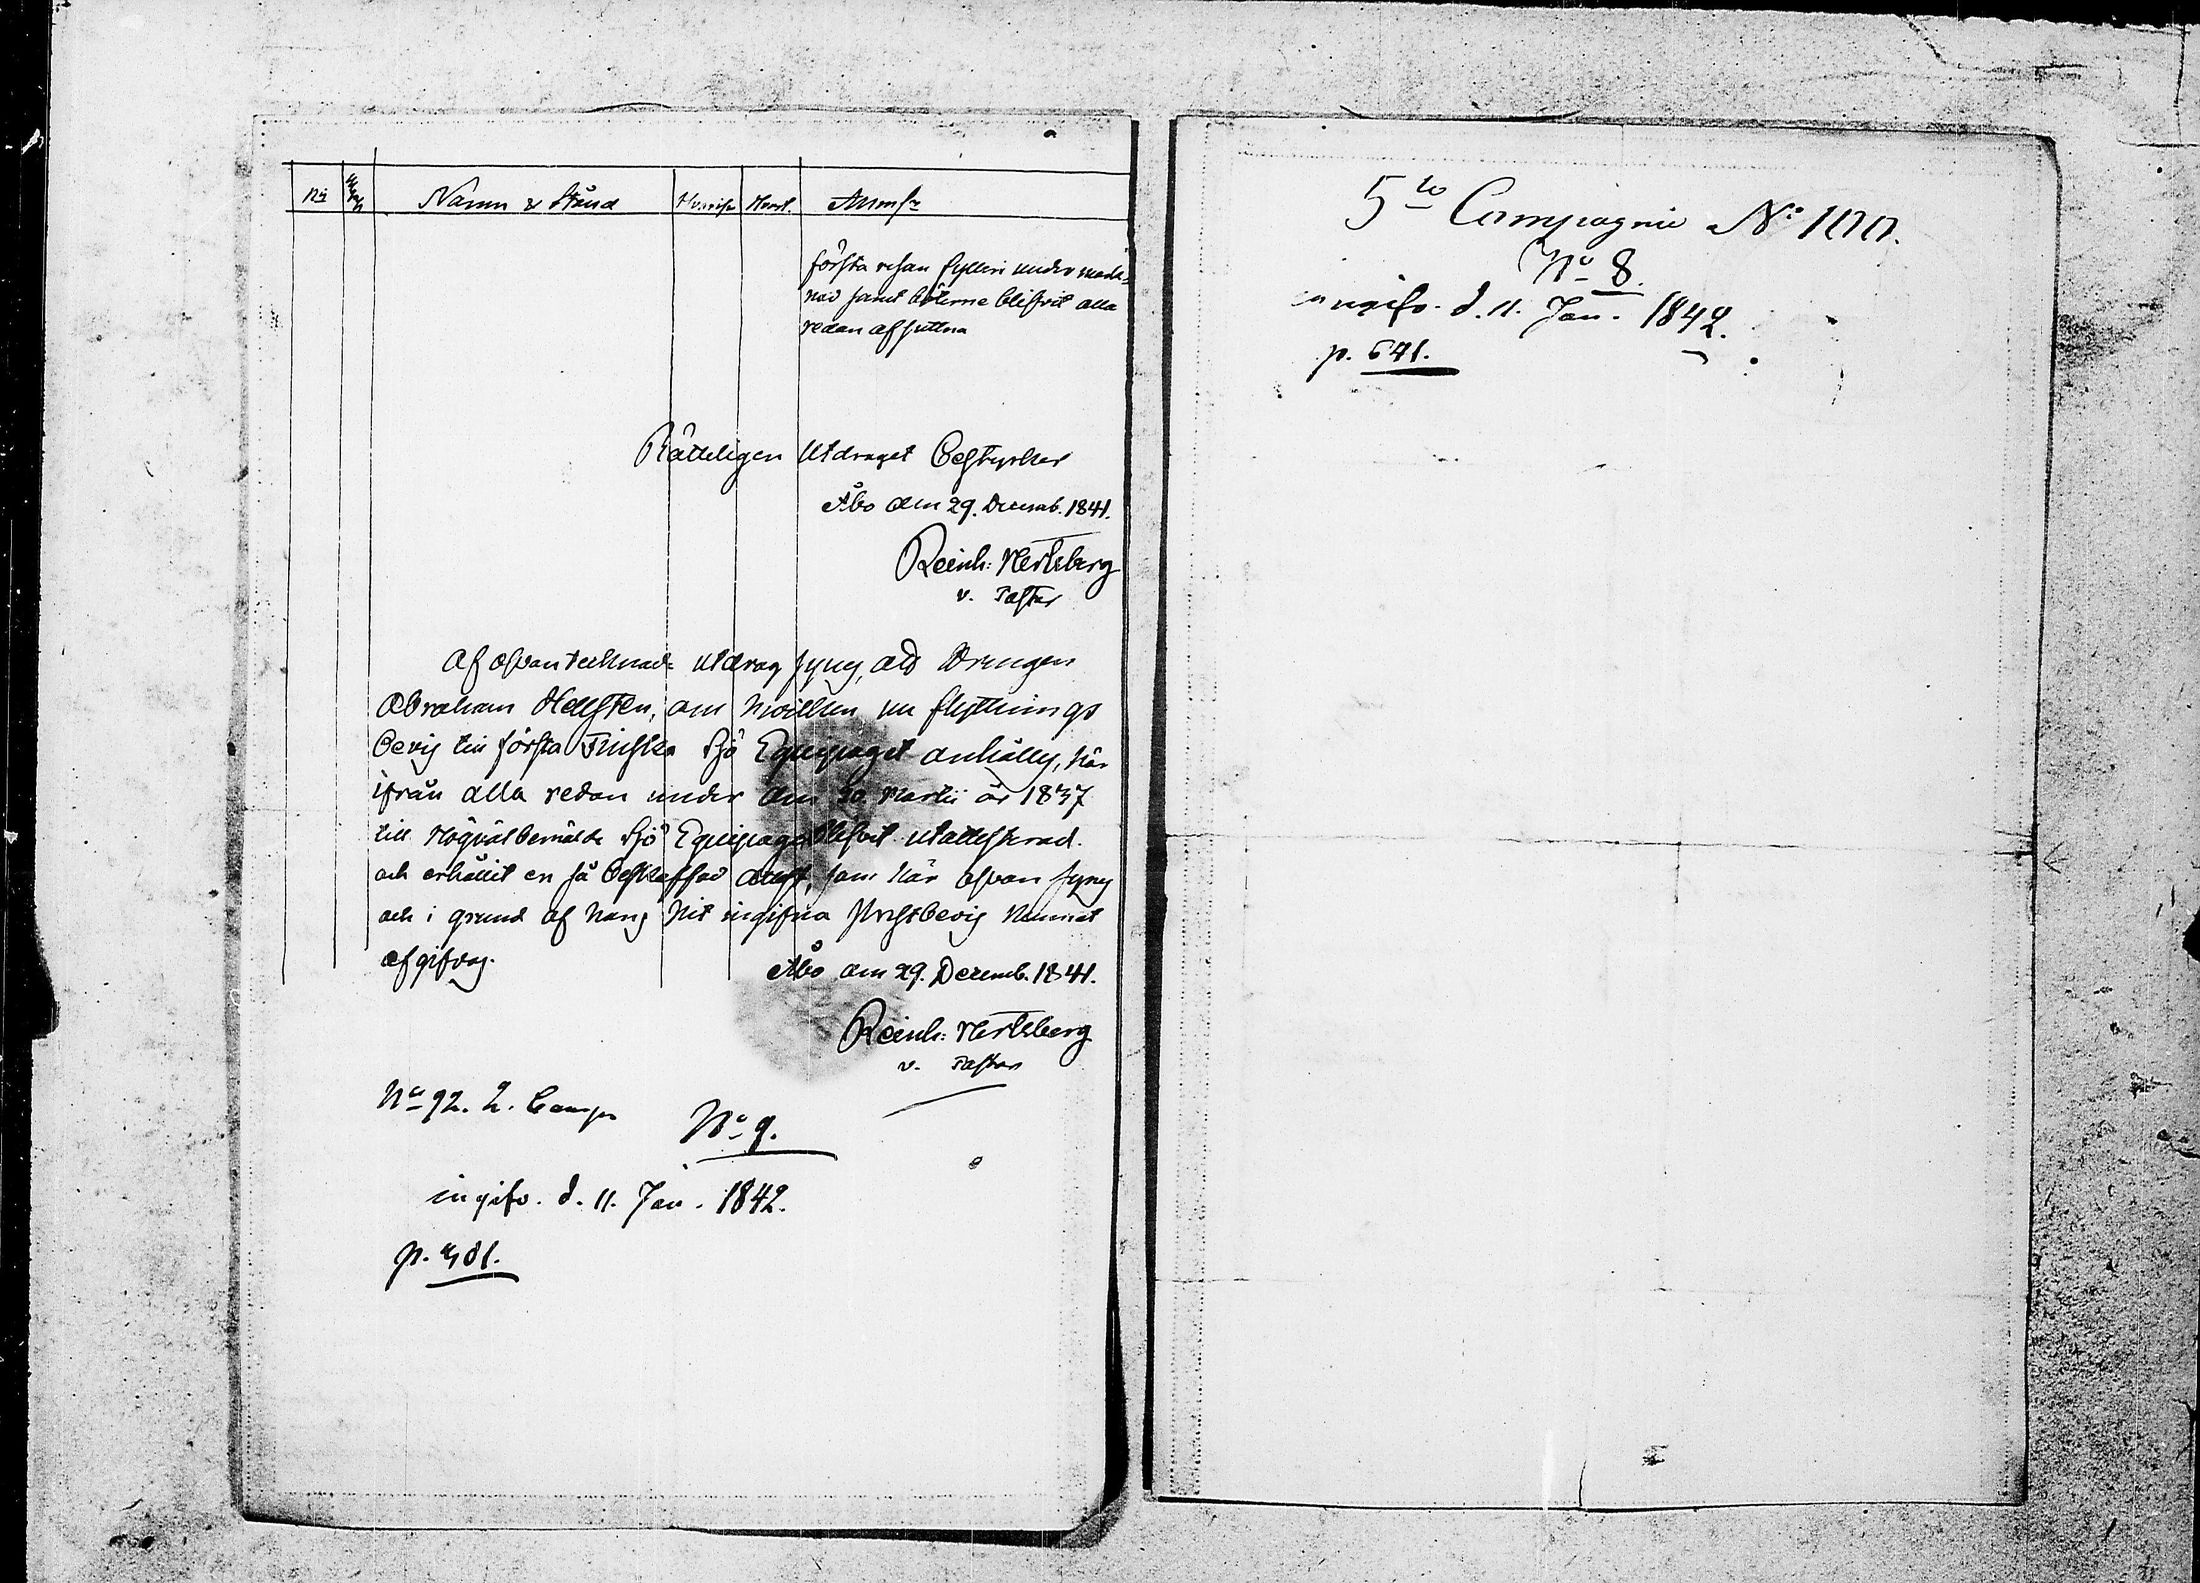 No
Namn & Stånd
Anmk
första resan fylleri under mark-
nad samt böterne blifvit alla
redan afsuttna
Rätteligen Utdraget Bestyrker
Åbo den 29. Decemb. 1841.
Reinh: Hertzberg
v. Pastor
Af ofvantecknade utdrag synes, att Drengen
Abraham Hellsten, om hvilken nu flyttnings
bevis till första Finska Sjö Equipaget anhålles, här
ifrån alla redan under den 30 Martii år 1837
till Högvälbemälde Sjö Equipage blifvit utattesterad
och erhållit en så beskaffad attest, som här ofvan synes
och i grund af hans hit ingifna Prestbevis kunnat
afgifvas.
Åbo den 29. Decemb. 1841.
Reinh: Hertzberg
v. Pastor
No 92. 2. Comp
No 9.
ingifv. d. 11. Jan. 1842.
p. 481.
5te Compagnie No 100.
No 8.
ingifv. d. 11. Jan. 1842.
p. 641.